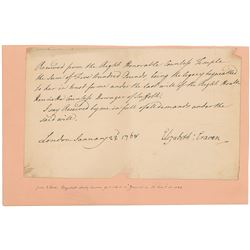 Received from the Right Honorable Countess Temple
the Sum of Five Hundred Pounds being the legacy bequeathed
to her in trust for me under the last will of the Right Honble
Henrietta Countess Dowager of Suffolk
I say Received by me in full of all demands under the
said will.
London January 23 1768 Elizabeth Craven